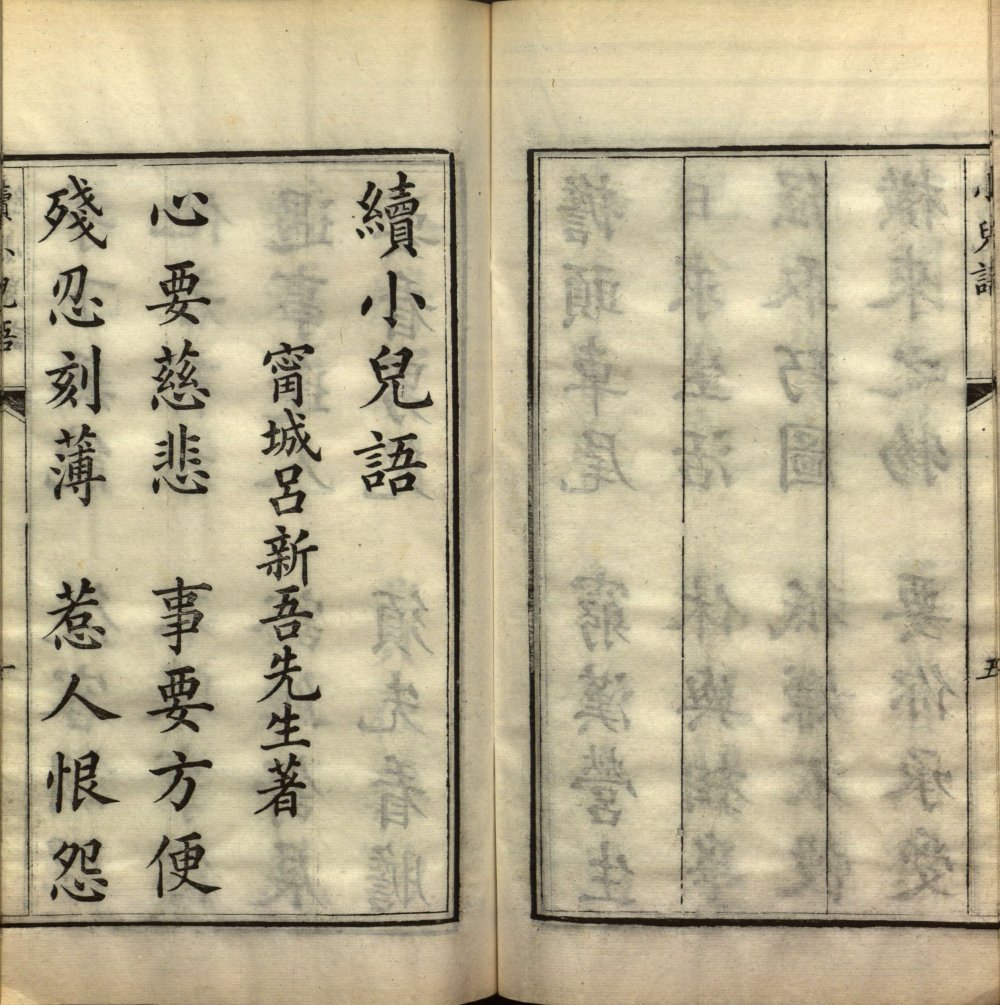 小兒語
五
續小兒語
甯城呂新吾先生著
心要慈悲　事要方便
殘忍刻薄　惹人恨怨
續小兒語
一